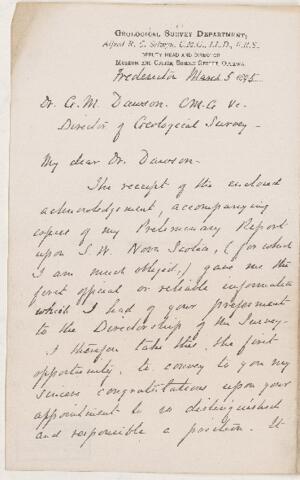 GEOLOGICAL SURVEY DEPARTMENT,
Alfred R. C. Selwyn, C.M.G., LL.D., F.R.S.
DEPUTY HEAD AND DIRECTOR
MUSEUM AND OFFICE, SUSSEX STREET, OTTAWA.
Fredericton March 5 1895
Dr. G. M. Dawson. C.M.G &c.
Director of Geological Survey -
My dear Dr. Dawson -
The receipt of the enclosed
acknowledgement, accompanying
copies of my Preliminary Report
upon S. W. Nova Scotia, (for which
I am much obliged,) gave me the
first official or reliable information
which I had of your preferment
to the Directorship of the Survey -
I therefore take this, the first
opportunity, to convey to you my
sincere congratulations upon your
appointment to so distinguished
and responsible a position. It